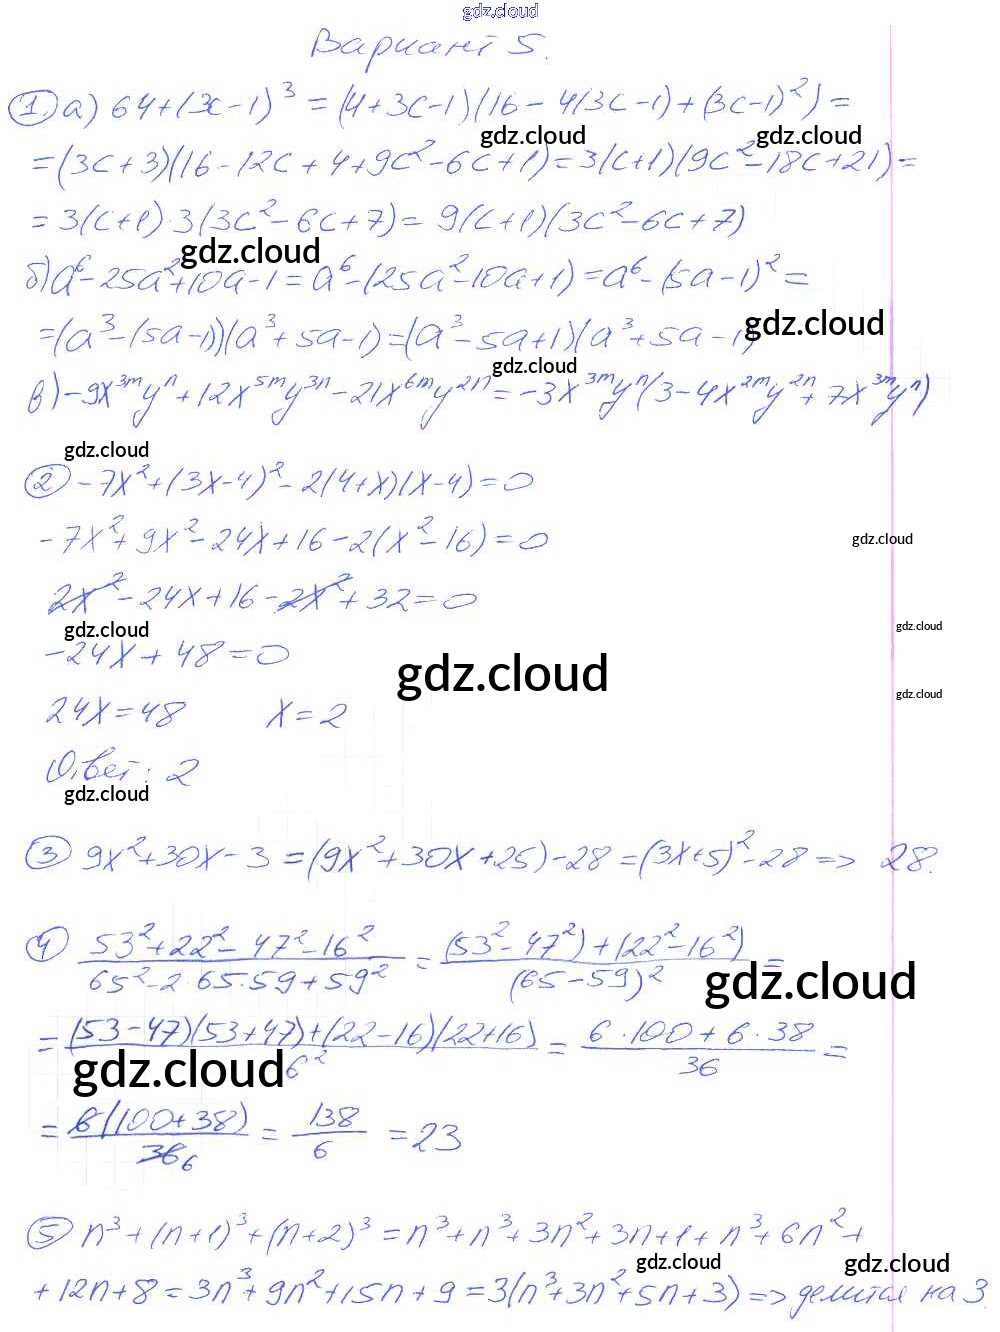 gdz.cloud
Вариант 5.
1. а) 64+(3c-1)³ = (4+3c-1)(16-4(3c-1)+(3c-1)²) =
gdz.cloud gdz.cloud
=(3c+3)(16-12c+4+9c²-6c+1)=3(c+1)(9c²-18c+21)=
=3(c+1)·3(3c²-6c+7)= 9(c+1)(3c²-6c+7)
gdz.cloud
б) a⁶-25a²+10a-1=a⁶-(25a²-10a+1)=a⁶-(5a-1)²=
gdz.cloud
=(a³-(5a-1))(a³+5a-1)=(a³-5a+1)(a³+5a-1)
gdz.cloud
в) -9x³ᵐyⁿ+12x⁵ᵐy³ⁿ-21x⁶ᵐy²ⁿ=-3x³ᵐyⁿ(3-4x²ᵐy²ⁿ+7x³ᵐyⁿ)
gdz.cloud
2 -7x²+(3x-4)²-2(4+x)(x-4)=0
-7x²+9x²-24x+16-2(x²-16)=0
gdz.cloud
2x²-24x+16-2x²+32=0
gdz.cloud gdz.cloud
-24x+48=0
gdz.cloud
gdz.cloud
24x=48 x=2
Ответ: 2
gdz.cloud
3 9x²+30x-3=(9x²+30x+25)-28=(3x+5)²-28 => 28.
4 (53²+22²-47²-16²)/(65²-2·65·59+59²) = ((53²-47²)+(22²-16²))/(65-59)² =
gdz.cloud
= ((53-47)(53+47)+(22-16)(22+16))/6² = (6·100+6·38)/36 =
gdz.cloud
= 6(100+38)/36 6 = 138/6 = 23
5 n³+(n+1)³+(n+2)³=n³+n³+3n²+3n+1+n³+6n²+
gdz.cloud gdz.cloud
+12n+8=3n³+9n²+15n+9=3(n³+3n²+5n+3) => делится на 3.